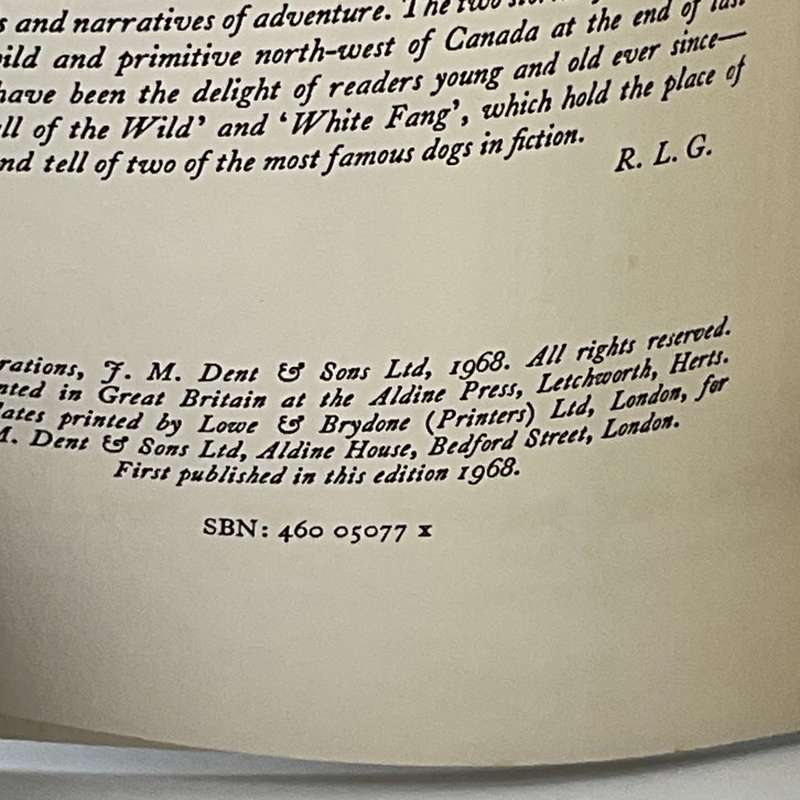 s and narratives of adventure. The two
ild and primitive north-west of Canada at the end of last
have been the delight of readers young and old ever since—
ll of the Wild' and 'White Fang', which hold the place of
nd tell of two of the most famous dogs in fiction.
R. L. G.
rations, J. M. Dent & Sons Ltd, 1968. All rights reserved.
nted in Great Britain at the Aldine Press, Letchworth, Herts.
lates printed by Lowe & Brydone (Printers) Ltd, London, for
M. Dent & Sons Ltd, Aldine House, Bedford Street, London.
First published in this edition 1968.
SBN: 460 05077 x